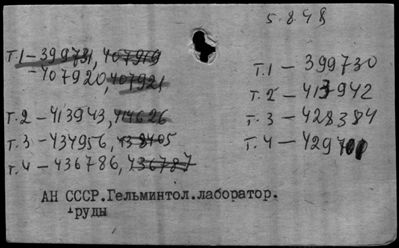 5.848
т.1 – 399731, 407919
– 407920, 407921
т.2 – 413943, 414626
т.3 – 434956, 438405
т.4 – 436786, 436787
т.1 – 399730
т.2 – 413942
т.3 – 428384
т.4 – 429700
АН СССР.Гельминтол.лаборатор.
Труды